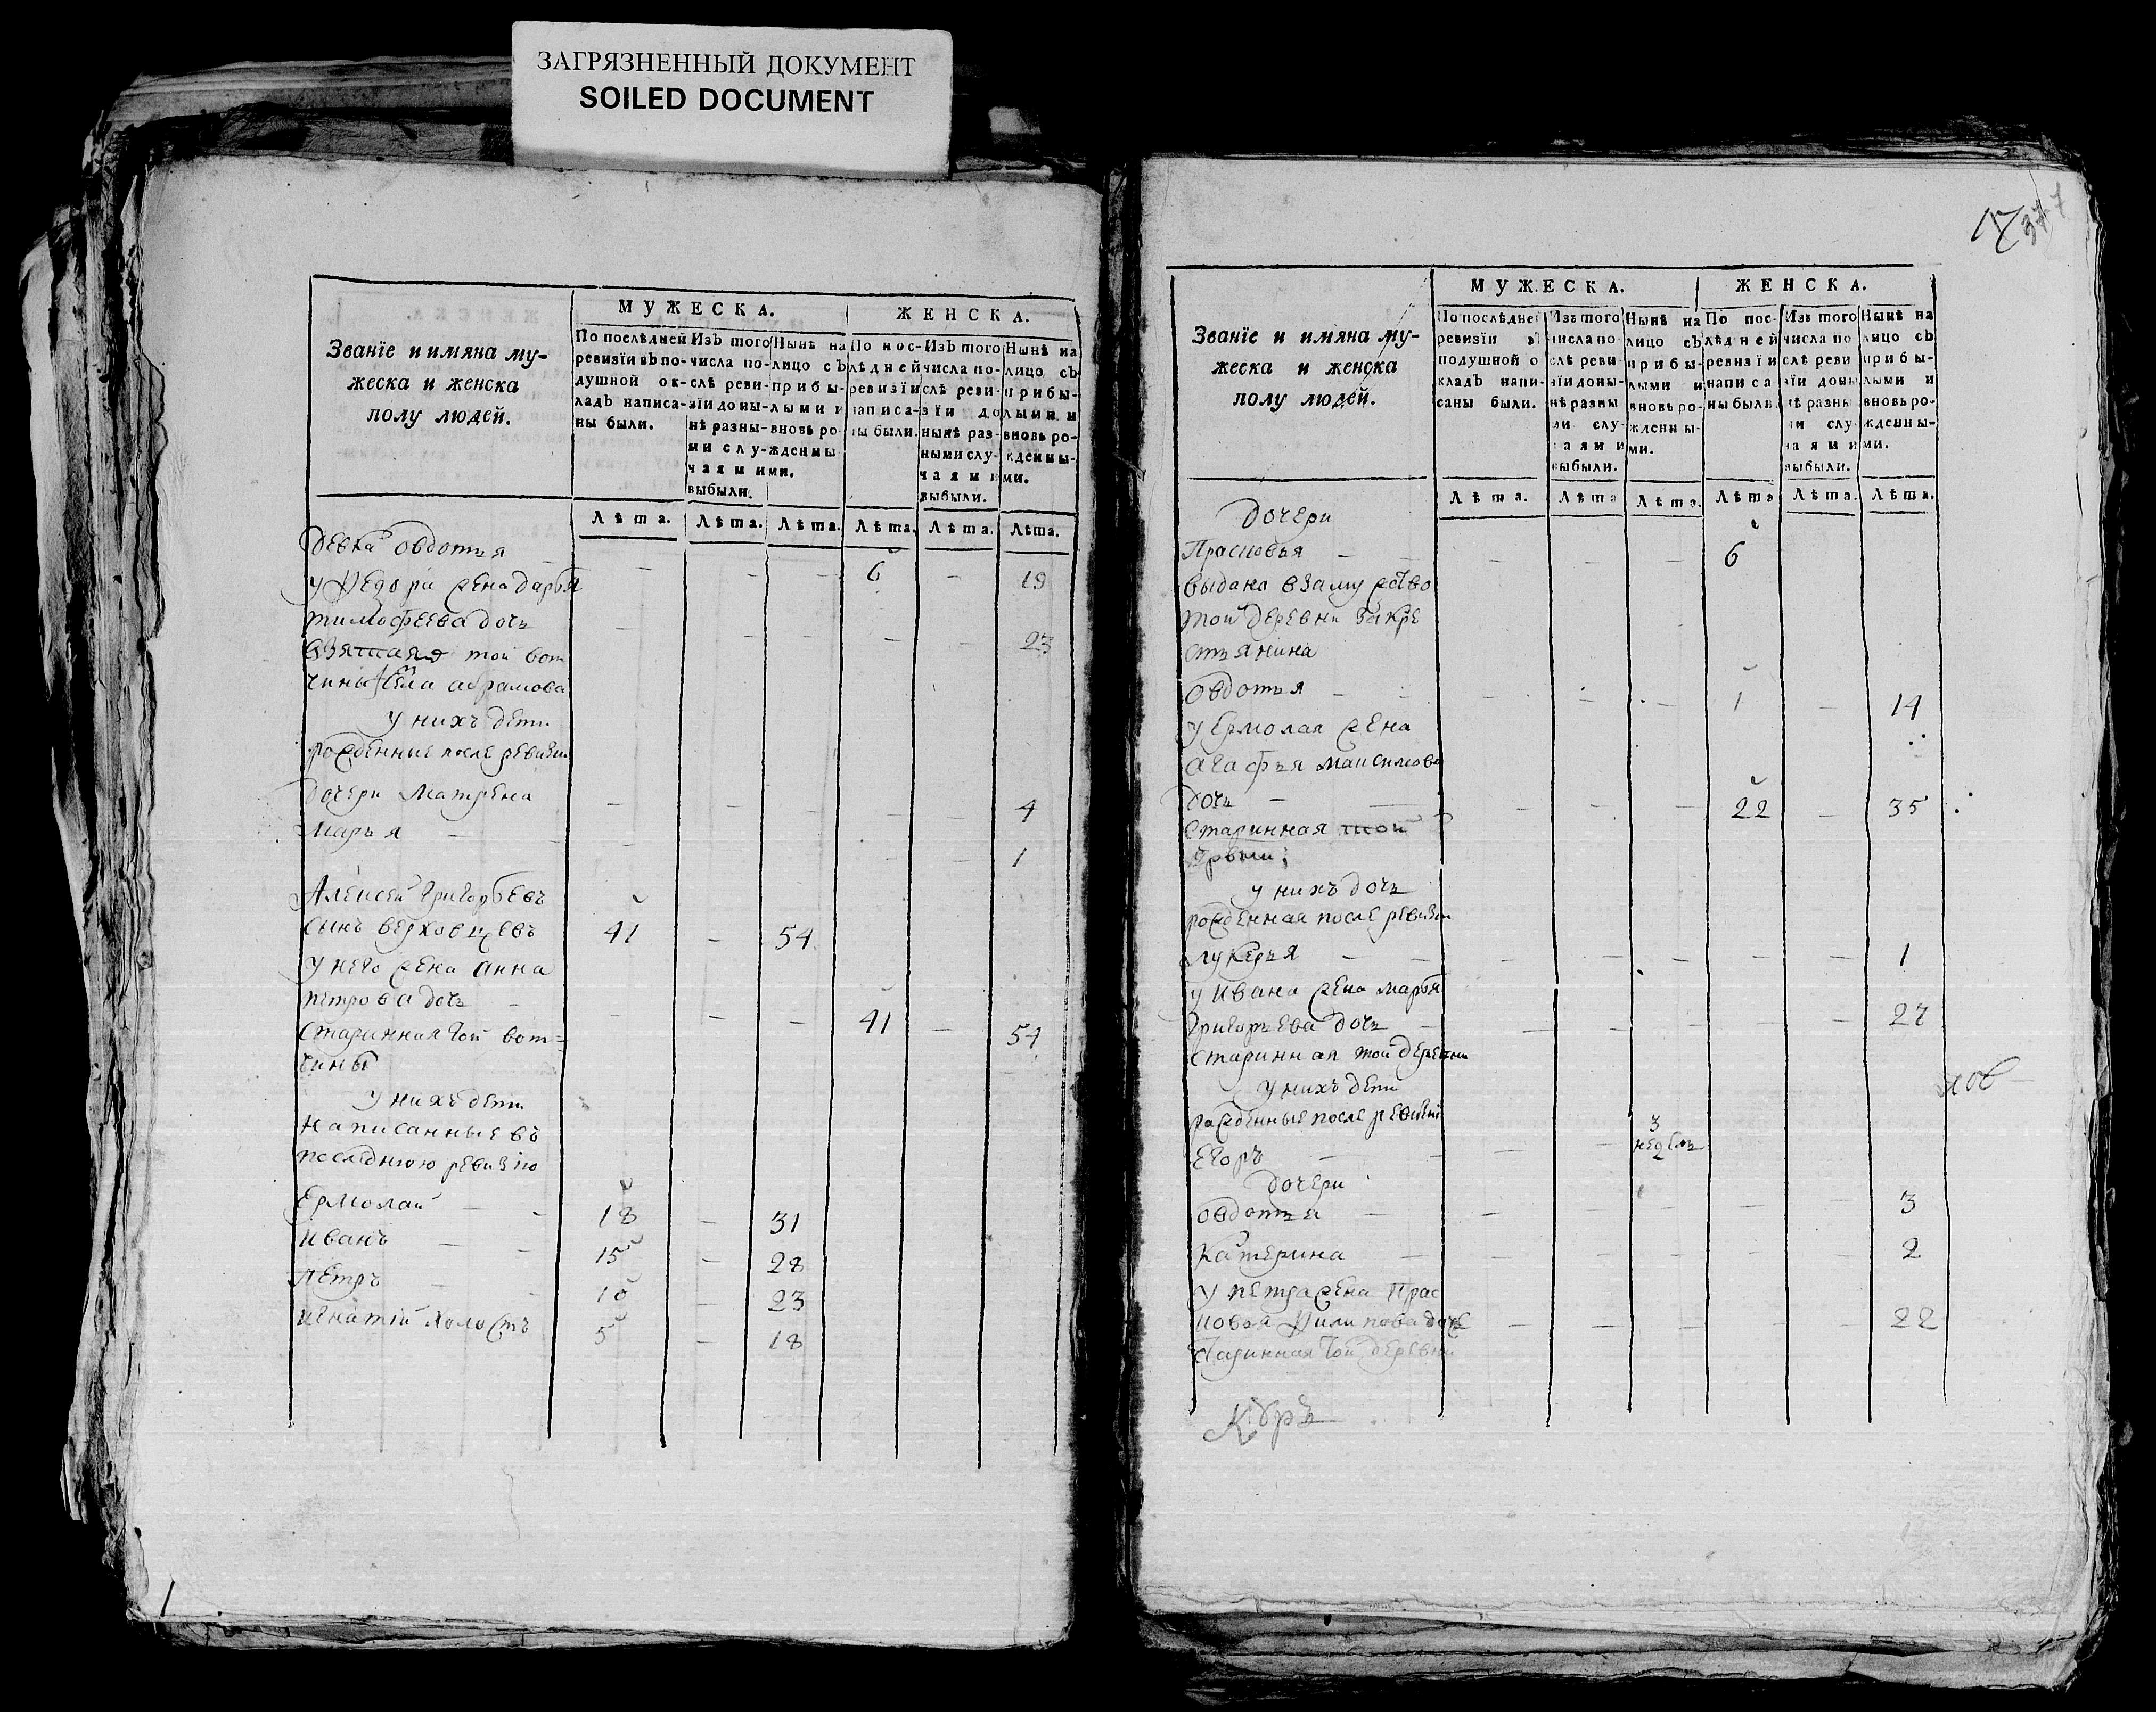 ЗАГРЯЗНЕННЫЙ ДОКУМЕНТ
SOILED DOCUMENT
Званїе и имяна му-
жеска и женска
полу людей.
МУЖЕСКА.
ЖЕНСКА.
По послѣдней
ревизїи въ по-
душной ок-
ладъ написа-
ны были.
Изъ того
числа по-
слѣ реви-
зїи доны-
нѣ разны-
ми слу-
чаями
выбыли.
Нынѣ на
лицо съ
прибы-
лыми и
вновь ро-
жденны
ми.
По пос-
лѣдней
ревизїи
написа-
ны были.
Изъ того
числа по-
слѣ реви-
зїи до
нынѣ раз-
ными слу-
чаями
выбыли.
Нынѣ на
лицо съ
прибы-
лыми и
вновь ро-
жденны-
ми.
Лѣта. Лѣта. Лѣта. Лѣта. Лѣта. Лѣта.
девка овдотья — — — 6 — 19
у Федора жена дарья
тимофеева дочь — — — — — 23
взятая той вот
чины села абрамова
у нихъ дети
рожденные после ревизии
дочери Матрена — — — — — 4
Марья — — — — 1
Алексей григорьевъ
сынъ верховцевъ 41 — 54
у него жена анна
петрова дочь — — — — 41 — 54
старинная той вот=
чины
у нихъ дети
написанные въ
последнюю ревизию
Ермолай — — 18 — 31
иванъ — — 15 — 28
петръ — — 10 — 23
игнатий холостъ 5 — 18
17
377
Званїе и имяна му-
жеска и женска
полу людей.
МУЖЕСКА.
ЖЕНСКА.
По послѣдней
ревизїи въ
подушной о
кладъ напи-
саны были.
Изъ того
числа по-
слѣ реви-
зїи доны-
нѣ разны
ми слу-
чаями
выбыли.
Нынѣ на
лицо съ
прибы-
лыми и
вновь ро-
жденны-
ми.
По пос-
лѣдней
ревизїи
написа-
ны были.
Изъ того
числа по
слѣ реви
зїи доны
нѣ разны
ми слу-
чаями
выбыли.
Нынѣ на
лицо съ
прибы-
лыми и
вновь ро-
жденны-
ми.
Лѣта. Лѣта Лѣта. Лѣта Лѣта. Лѣта.
дочери
Прасковья — — — — — 6
выдана взамужство
той деревни за кре
стьянина
овдотья — — — — — 1 — 14
у ермолая жена
агафья максимова
дочь — — — — — 22 — 35
старинная той
у нихъ дочь
рожденная после ревизии
лукерья — — — — — — — 1
у ивана жена марья
григорьева дочь — — — — — — 27
старинная той деревни
у нихъ дети
рожденные после ревизии
3
Егоръ — — — — недель
дочери
овдотья — — — — — — 3
катерина — — — — — — 2
у петра жена Прас
ковья Филипова дочь — — — — — 22
старинная той деревни